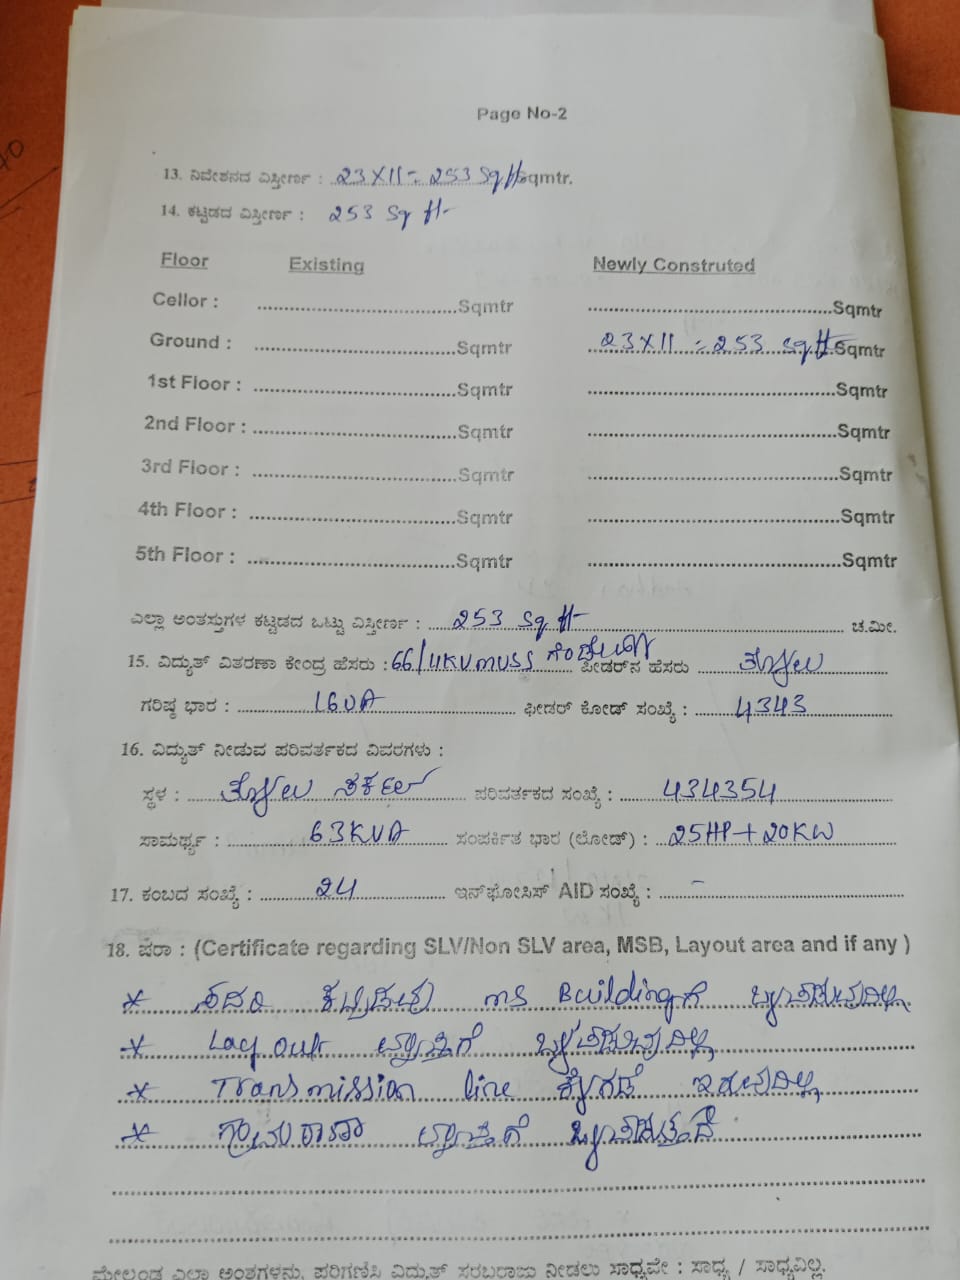 Page No-2
13. ನಿವೇಶನದ ವಿಸ್ತೀರ್ಣ : 23 X 11 = 253 Sq ft Sqmtr.
14. ಕಟ್ಟಡದ ವಿಸ್ತೀರ್ಣ : 253 Sq ft
Floor Existing Newly Construted
Cellor : ..............Sqmtr ..............Sqmtr
Ground : ..............Sqmtr 23 X 11 = 253 sq ft Sqmtr
1st Floor : ..............Sqmtr ..............Sqmtr
2nd Floor : ..............Sqmtr ..............Sqmtr
3rd Floor : ..............Sqmtr ..............Sqmtr
4th Floor : ..............Sqmtr ..............Sqmtr
5th Floor : ..............Sqmtr ..............Sqmtr
ಎಲ್ಲಾ ಅಂತಸ್ತುಗಳ ಕಟ್ಟಡದ ಒಟ್ಟು ವಿಸ್ತೀರ್ಣ : 253 Sq ft ಚ.ಮೀ.
15. ವಿದ್ಯುತ್ ವಿತರಣಾ ಕೇಂದ್ರ ಹೆಸರು : 66/11KV MUSS ಫೀಡರ್‌ನ ಹೆಸರು
ಗರಿಷ್ಠ ಭಾರ : ಫೀಡರ್ ಕೋಡ್ ಸಂಖ್ಯೆ : 4343
16. ವಿದ್ಯುತ್ ನೀಡುವ ಪರಿವರ್ತಕದ ವಿವರಗಳು :
ಸ್ಥಳ : ಸರ್ಕಲ್ ಪರಿವರ್ತಕದ ಸಂಖ್ಯೆ : 434354
ಸಾಮರ್ಥ್ಯ : 63KVA ಸಂಪರ್ಕಿತ ಭಾರ (ಲೋಡ್) : 25HP + 20KW
17. ಕಂಬದ ಸಂಖ್ಯೆ : 24 ಇನ್‌ಫೋಸಿಸ್ AID ಸಂಖ್ಯೆ : -
18. ಷರಾ : (Certificate regarding SLV/Non SLV area, MSB, Layout area and if any )
* ಸದರಿ ಕಟ್ಟಡವು MS Buildingಗೆ ಒಳಪಡುವುದಿಲ್ಲ
* Lay out ವ್ಯಾಪ್ತಿಗೆ ಒಳಪಡುವುದಿಲ್ಲ
* Transmission line ಕೆಳಗಡೆ ಇರುವುದಿಲ್ಲ
* ಗ್ರಾಮಠಾಣಾ ವ್ಯಾಪ್ತಿಗೆ ಒಳಪಡುತ್ತದೆ
ಮೇಲ್ಕಂಡ ಎಲ್ಲಾ ಅಂಶಗಳನ್ನು ಪರಿಗಣಿಸಿ ವಿದ್ಯುತ್ ಸರಬರಾಜು ನೀಡಲು ಸಾಧ್ಯವೇ : ಸಾಧ್ಯ / ಸಾಧ್ಯವಿಲ್ಲ.